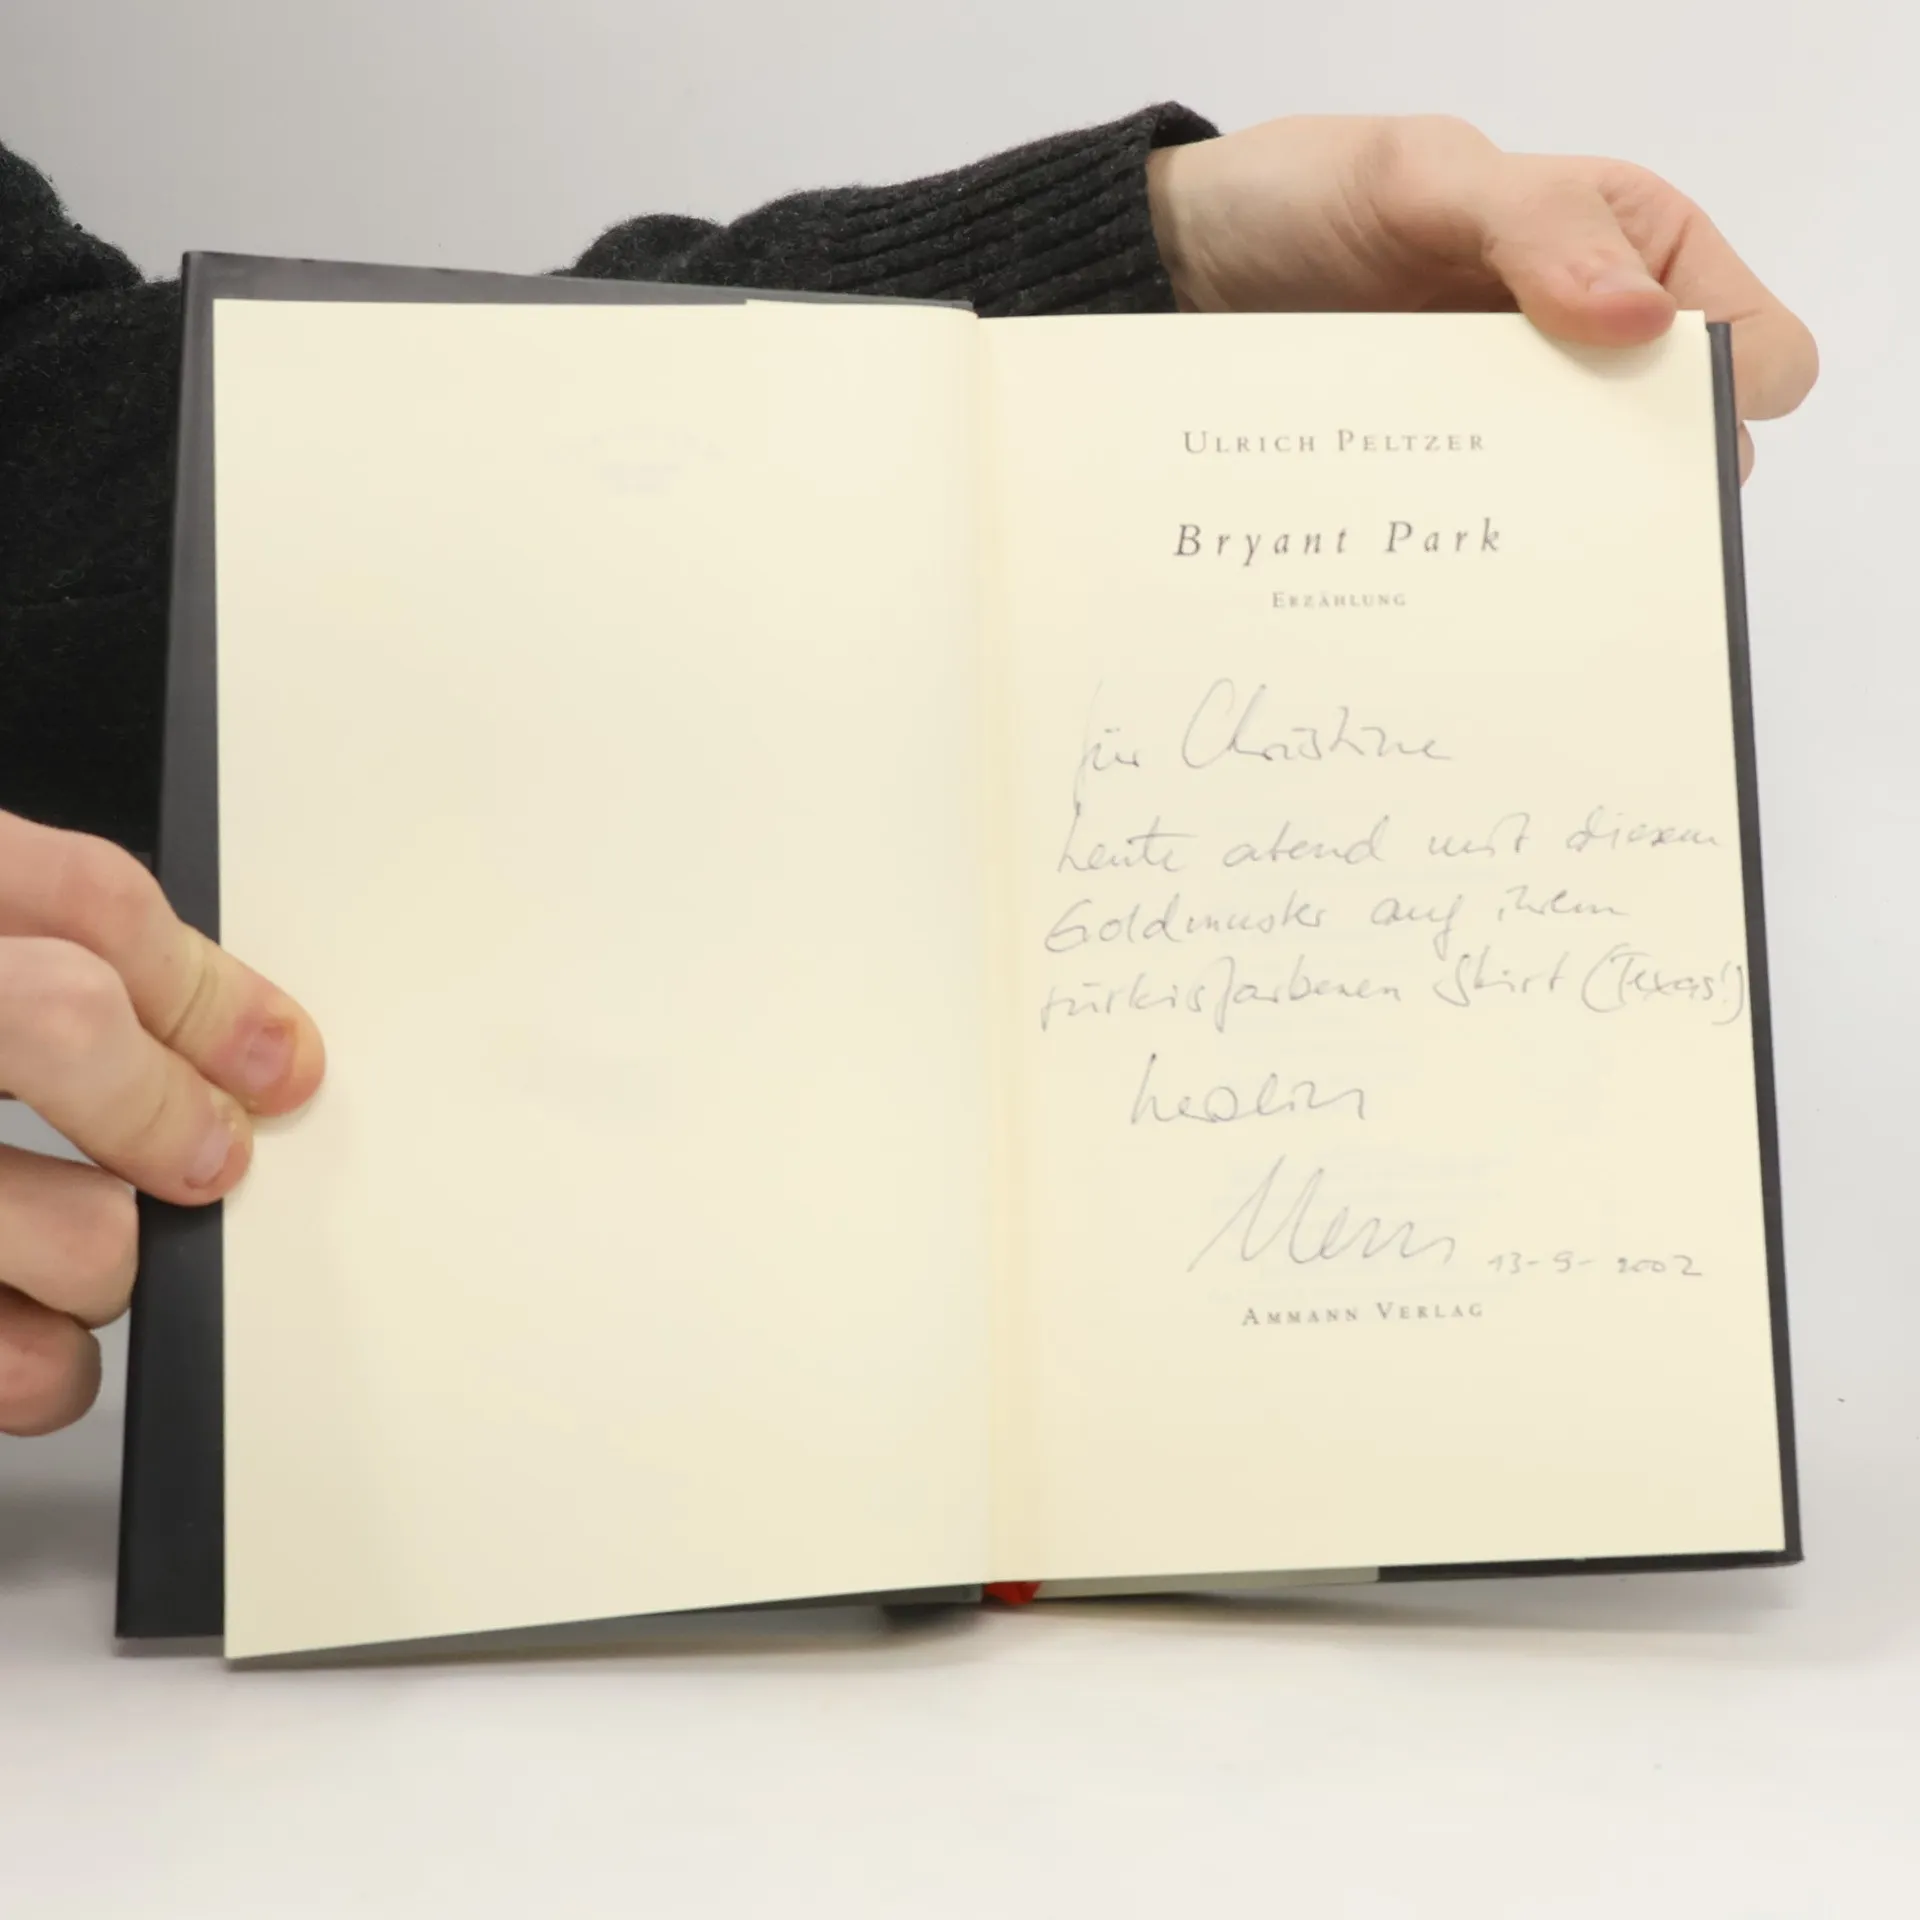 ULRICH PELTZER
Bryant Park
ERZÄHLUNG
für Christine
heute abend mit diesem
Goldmuster auf ihrem
türkisfarbenen Shirt (Texas!)
herzlich
13-9-2002
AMMANN VERLAG